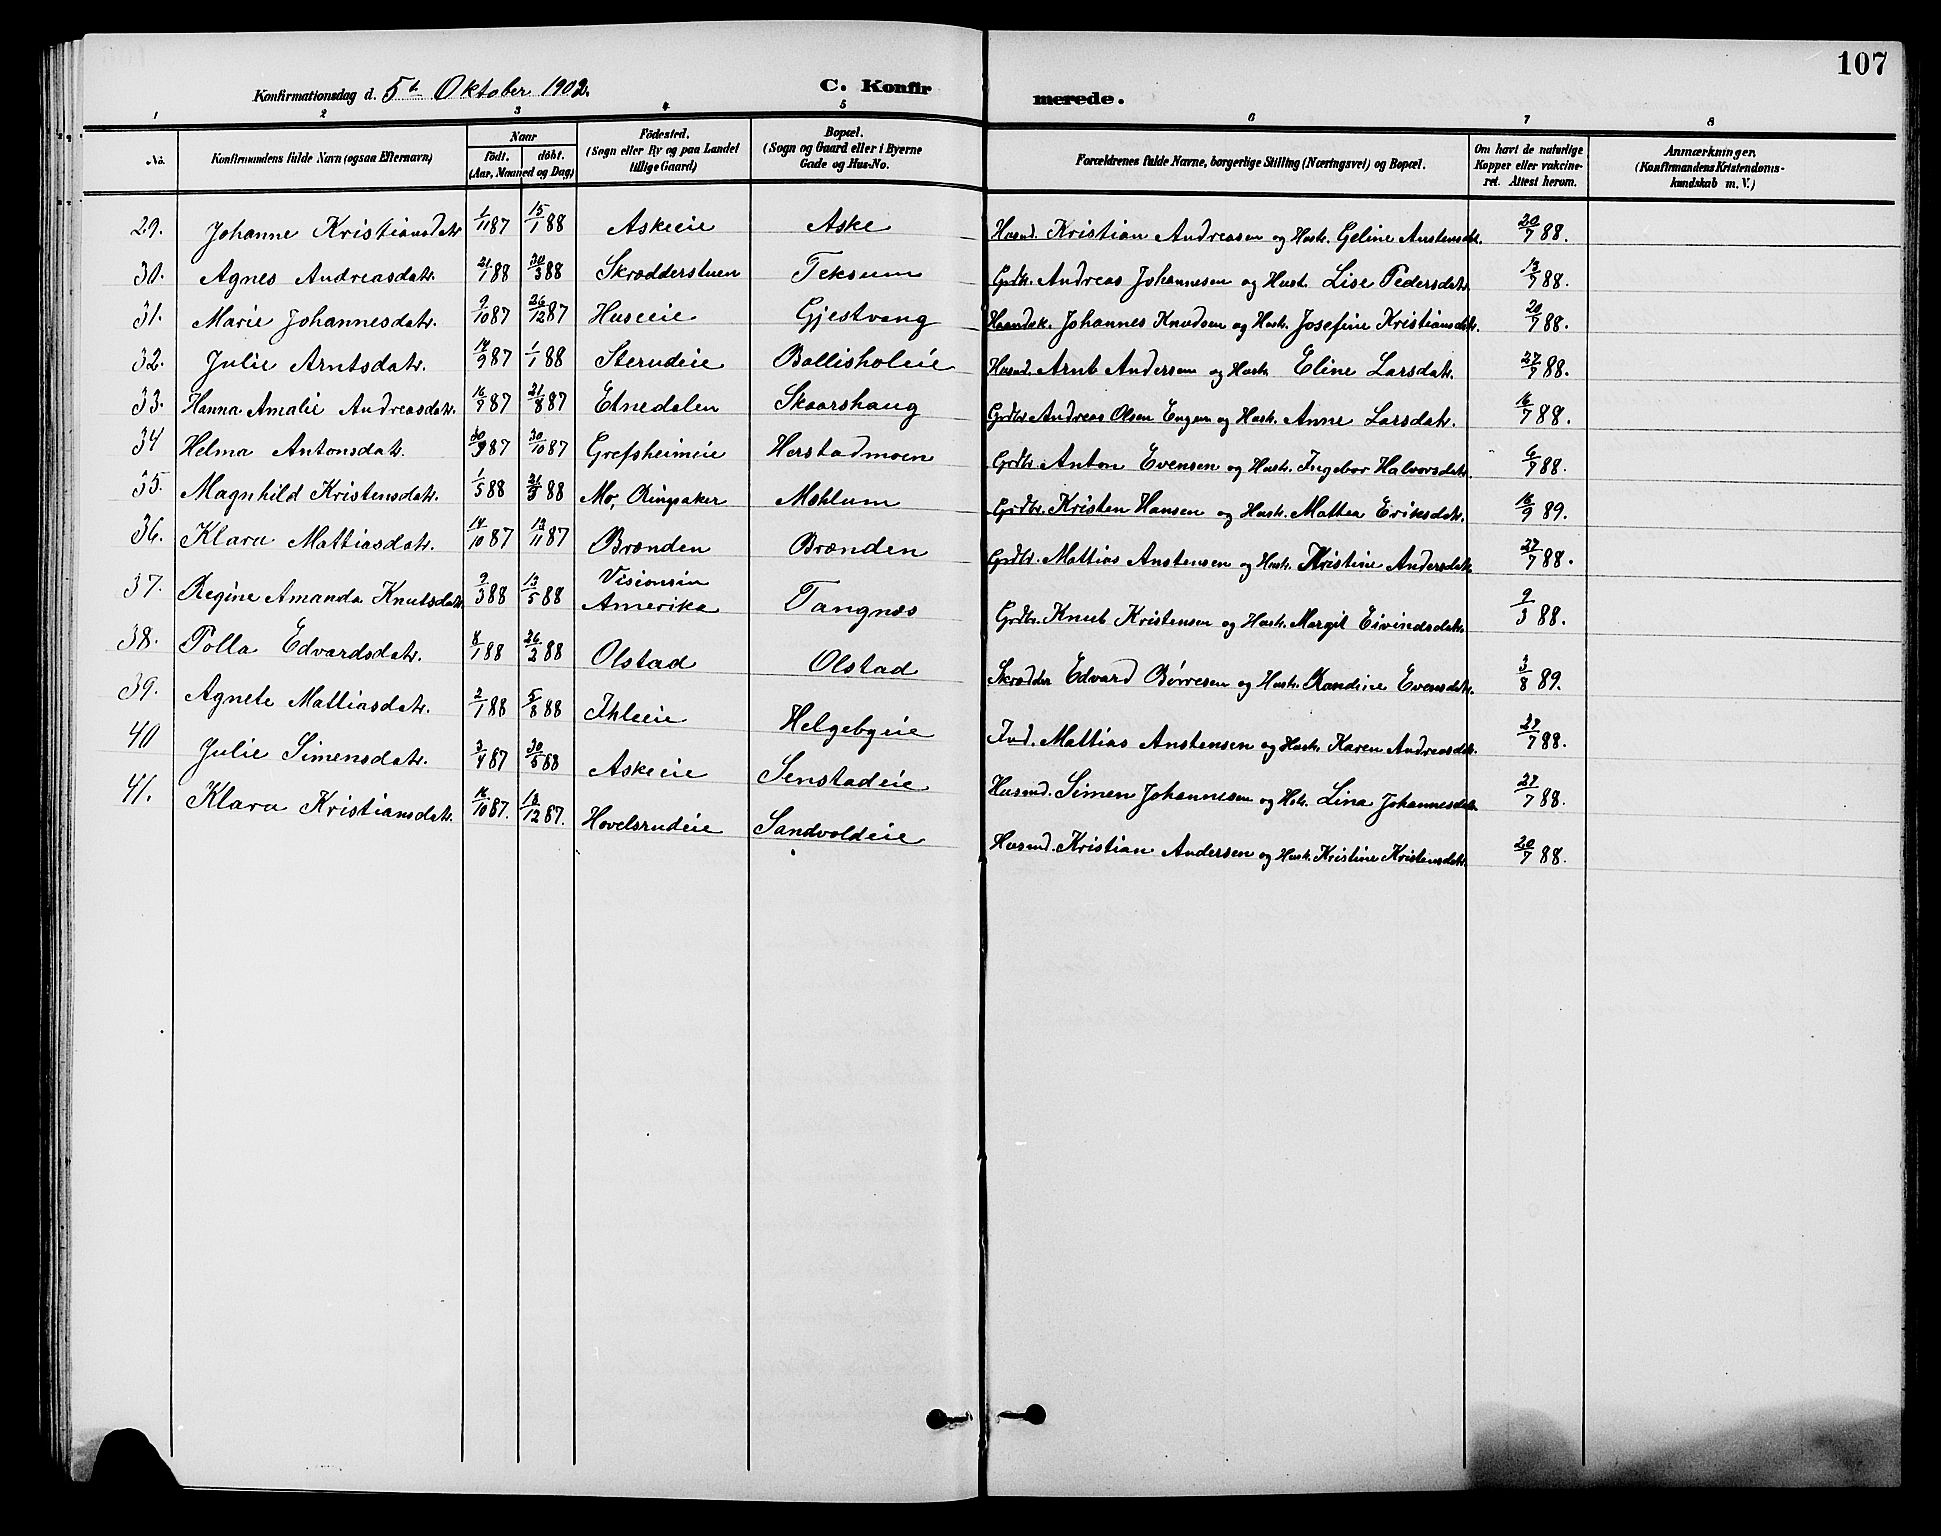 107
Konfirmationsdag d. 5te Oktober 1902.
C. Konfirmerede.
1 2 3 4 5 6 7 8
No.
Konfirmandens fulde Navn (ogsaa Efternavn)
Naar
födt. döbt.
(Aar, Maaned og Dag)
Födested.
(Sogn eller By og paa Landet
tillige Gaard)
Bopæl.
(Sogn og Gaard eller i Byerne
Gade og Hus-No.
Forældrenes fulde Navne, borgerlige Stilling (Næringsvei) og Bopæl.
Om havt de naturlige
Kopper eller vakcine-
ret. Attest herom.
Anmærkninger.
(Konfirmandens Kristendoms-
kundskab m. V.)
29. Johanne Kristiansdatr 1/11 87 15/1 88 Askeeie Aske Husmd. Kristian Andreasen og Hustr. Geline Anstensdtr. 20/7 88.
30. Agnes Andreasdatr. 21/1 88 30/3 88 Skrædderstuen Teksum Grdbr. Andreas Johannesen og Hust. Lise Pedersdatr. 13/7 88.
31. Marie Johannesdatr. 9/10 87 26/12 87 Huseeie Gjestvang Haandsk. Johannes Knudsen og Hustr. Josefine Kristiansdatr. 20/7 88.
32. Julie Arntsdatr. 14/9 87 1/1 88 Sterudeie Bollisholeie Husmd. Arnt Andersen og Hustr. Eline Larsdatr. 27/7 88.
33. Hanna Amalie Andreasdatr. 16/7 87 21/8 87 Etnedalen Skaarshaug Grdbr. Andreas Olsen Engen og Hustr. Anne Larsdatr. 16/7 88.
34 Helma Antonsdatr. 30/9 87 30/10 87 Grefsheimeie Herstadmoen Grdbr. Anton Evensen og Hustr. Ingebor Halvorsdatr. 6/7 88.
35. Magnhild Kristensdatr. 1/5 88 21/5 88 Mo, Ringsaker Mehlum Grdbr. Kristen Hansen og Hustr. Mathea Eriksdatr. 16/9 89.
36. Klara Mattiasdatr. 14/10 87 13/11 87 Brænden Brænden Grdbr. Mattias Anstensen og Hustr. Kristine Andersdatr. 27/7 88.
37. Regine Amanda Knutsdatr. 9/3 88 13/5 88 Visionsin
Amerika Tangnæs Grdbr. Knut Kristensen og Hustr. Margit Eivindsdatr. 9/3 88.
38. Polla Edvardsdatr. 8/1 88 26/2 88 Olstad Olstad Skrædder Edvard Børresen og Hustr. Randine Evensdatr. 3/8 89.
39. Agnete Mattiasdatr. 2/1 88 5/8 88 Ihleeie Helgebyeie Ind. Mattias Anstensen og Hustr. Karen Andreasdatr. 27/7 88.
40 Julie Simensdatr. 3/4 87 30/5 88 Askeeie Senstadeie Husmd. Simen Johannesen og Hstr. Lina Johannesdatr. 27/7 88.
41. Klara Kristiansdatr. 16/10 87. 18/12 87. Hovelsrudeie Sandvoldeie Husmd. Kristian Andersen og Hustr. Kristine Kristensdatr. 20/7 88.